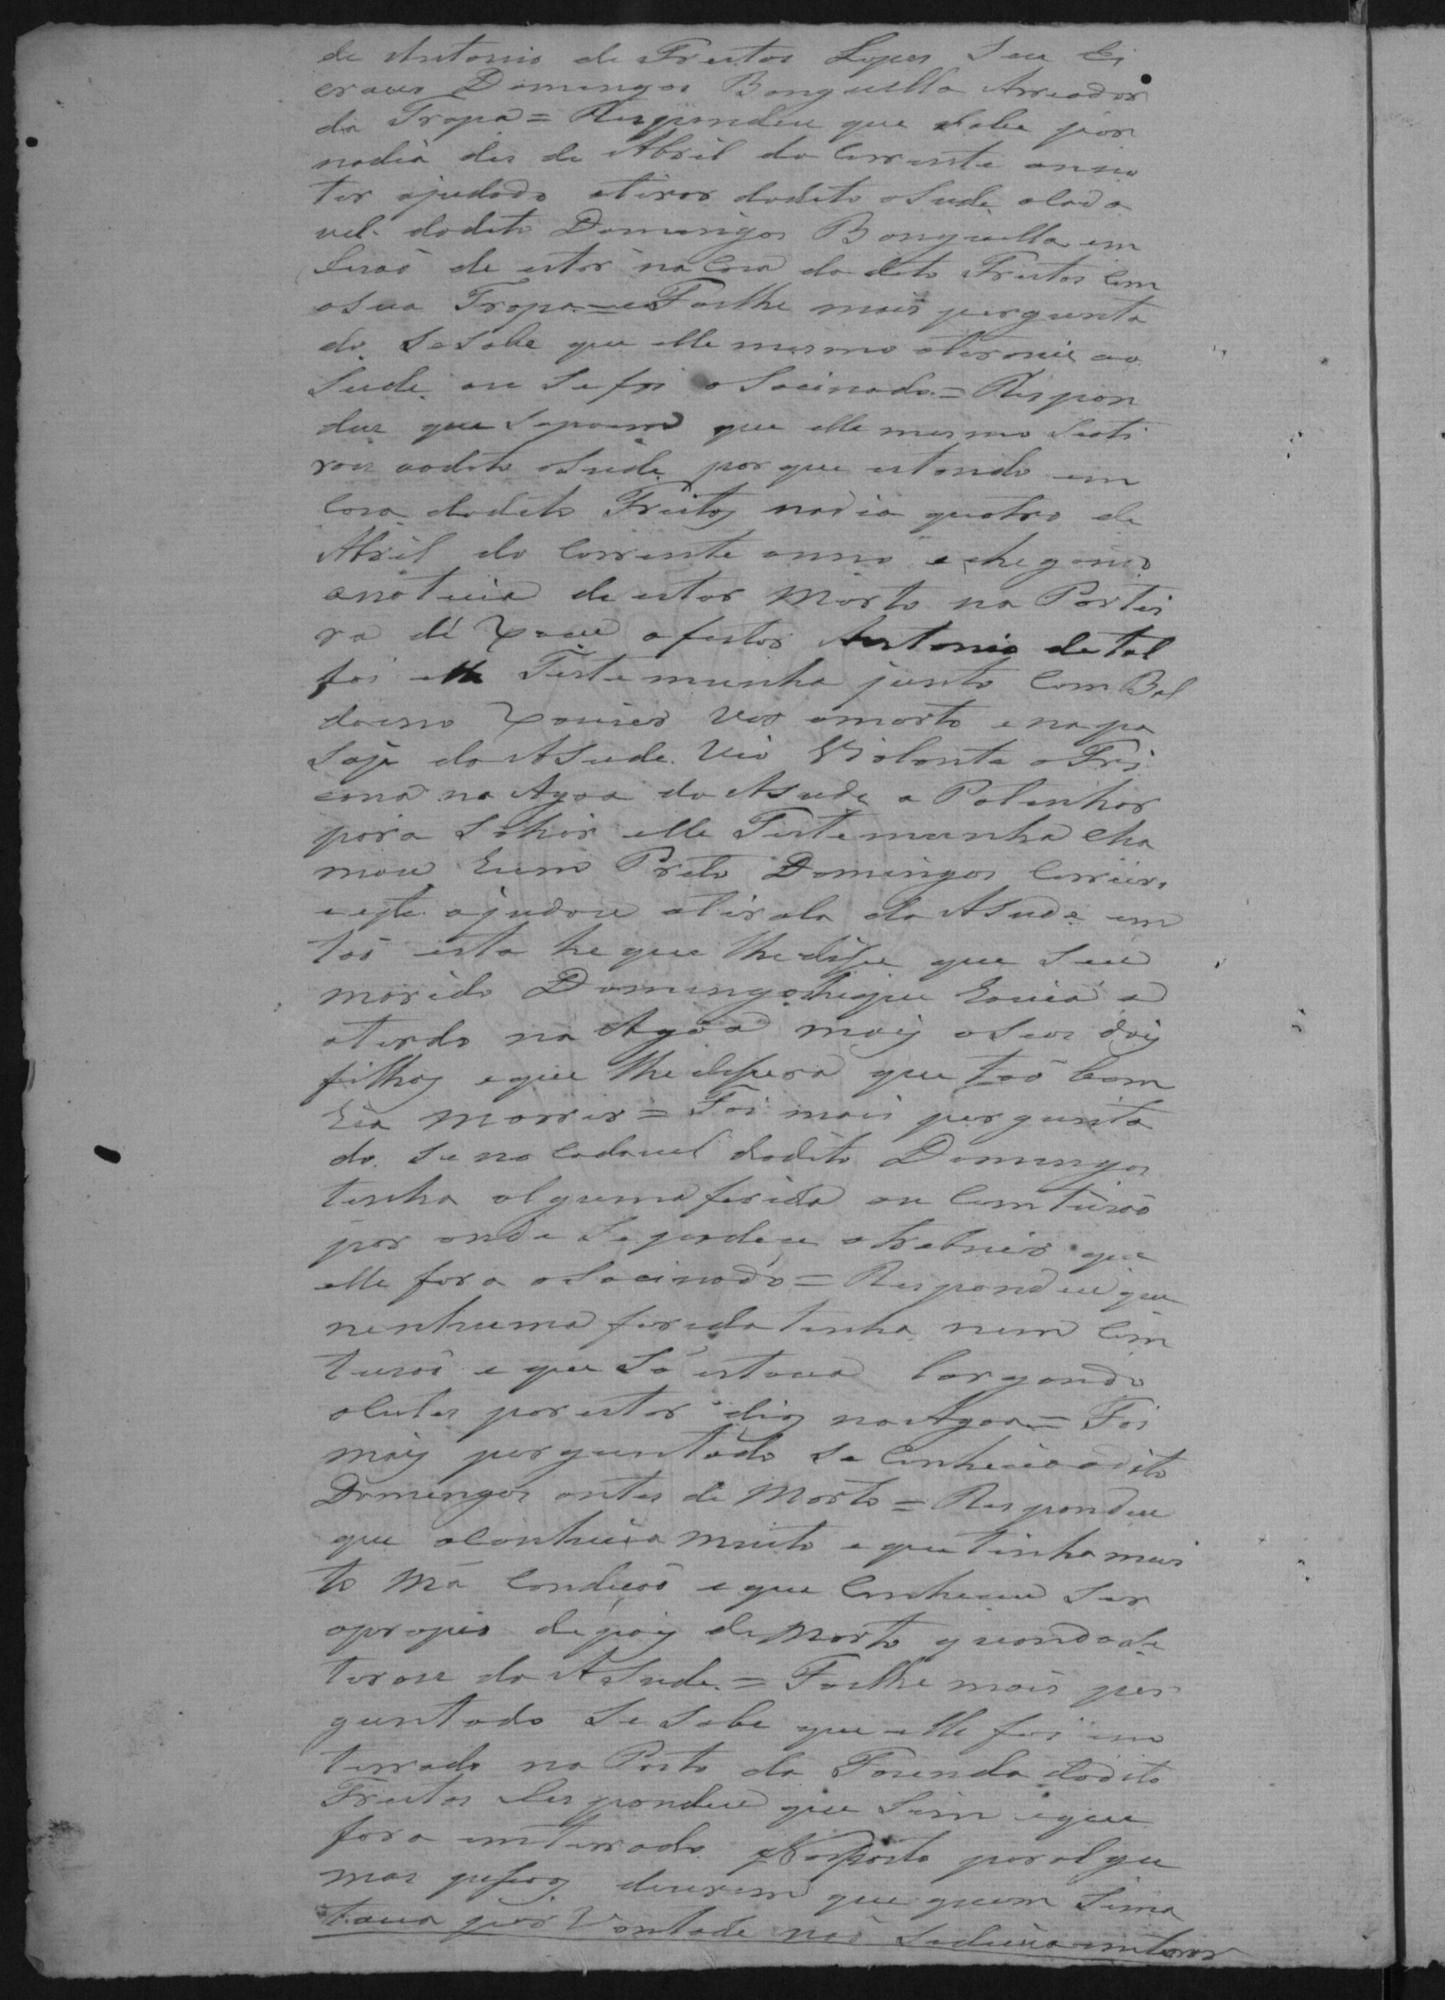 de Antonio de Freitas Lopes Seu Es
cravo Domingos Bonguella Arriador
da Tropa = Respondeu que Sabe por
nodia des de Abril do Corrente anno
ter ajudado atirar dodito asude olado
vel dodito Domingos Bonguella em
de estar na Casa do dito Freitas Com
asua Tropa = Foilhe mais pergunta
do Sesabe que elle mesmo atirouse ao
Sude ou Sefoi asacinado = Respon
deu que Supoem que elle mesmo Seati
rou aodito asude por que estando em
Casa dodito Freitas nodia quatro de
Abril do Corrente anno e chegando
anoticia de estar Morto na Portei
ra de o feitor Antonio de tal
foi elle Testemunha junto Com Bal
doino Xavier ver omorto e napa
saje do Asude Vio Violanta a Fri
cana na Agoa do Asude a Patinhar
para Sahir elle Testemunha cha
mou hum Preto Domingos
e este ajudou atirala do Asude em
taõ esta he que lhe disse que Seu
marido Domingos he que havia a
tirado na Agoa mais aseos dois
filhos eque lhe dissera que taõ bem
hia Morrer = Foi mais pergunta
do Se no Cadavel dodito Domingos
tinha alguma ferida ou Comtusaõ
por onde Sepodeu atrebuir que
elle fora asacinado = Respondeu que
nenhuma ferida tinha nem Com
tusaõ e que Só estava largando
acutes por estar dias na Agoa = Foi
mais perguntado Se Conhecia odito
Domingos antes de Morto = Respondeu
que oConhecia Muito e que tinha mui
to Má Conducaõ e que Conheceu Ser
oproprio depois de Morto quando Se
tirou do Asude = Foilhe mais per
guntado Se Sabe que elle foi em
terrado no Pasto da Fasenda dodito
Freitas Respondeu que Sim eque
fora emterrado no Pasto por algu
mas pessoas diserem que quem Sima
tava por Vontade naõ Sedevia enterrar